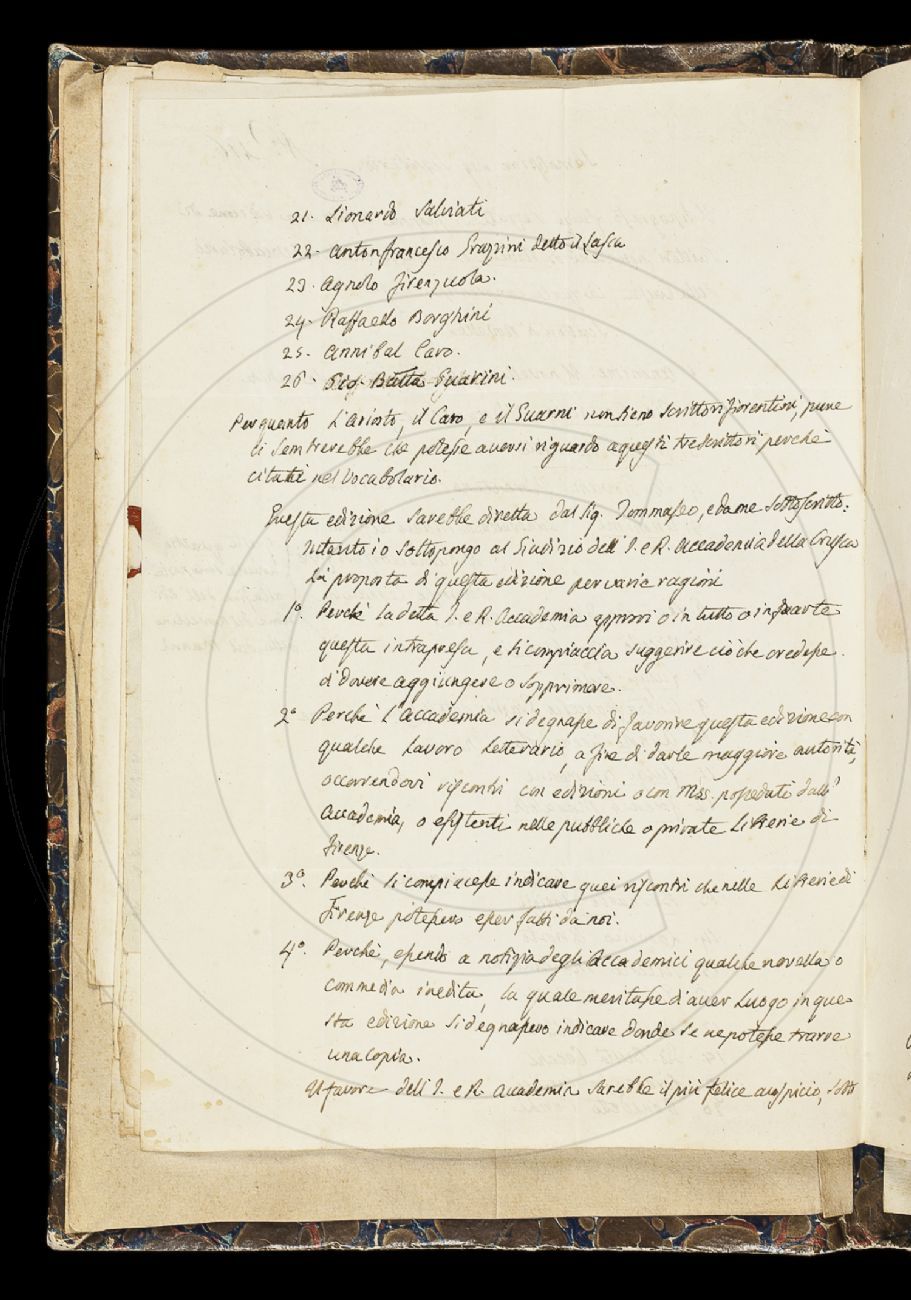 21. Lionardo Salviati
22. Antonfrancesco Grazzini detto il Lasca
23. Agnolo Firenzuola.
24. Raffaello Borghini
25. Annibal Caro.
26. Gio. Batta Guarini.
Per quanto L'Ariosto, il Caro, e il Guarini non sieno scrittori fiorentini, pure
ci sembrerebbe che potesse aversi riguardo a questi tre scrittori perchè
citati nel Vocabolario.
Questa edizione sarebbe diretta dal Sig. Tommaseo, e da me sottoscritto.
Intanto io sottopongo al Giudizio dell'I. e R. Accademia della Crusca
La proposta di questa edizione per varie ragioni
1º. Perchè la detta I. e R. Accademia approvi o in tutto o in parte
questa intrapresa, e si compiaccia suggerire ciò che credesse
di dovere aggiungere o sopprimere.
2º Perchè l'Accademia si degnasse di favorire questa edizione con
qualche Lavoro Letterario, a fine di darle maggiore autorità,
occorrendovi riscontri con edizioni o con Mss. posseduti dall'
Accademia, o esistenti nelle pubbliche o private Librerie di
Firenze.
3º. Perchè si compiacesse indicare quei riscontri che nelle Librerie di
Firenze potessero esser fatti da noi.
4º. Perchè, essendo a notizia degli Accademici qualche novella o
commedia inedita, la quale meritasse di aver Luogo in que-
sta edizione si degnassero indicare donde se ne potesse trarre
una copia.
Il favore dell'I. e R. Accademia sarebbe il più felice auspicio, sotto